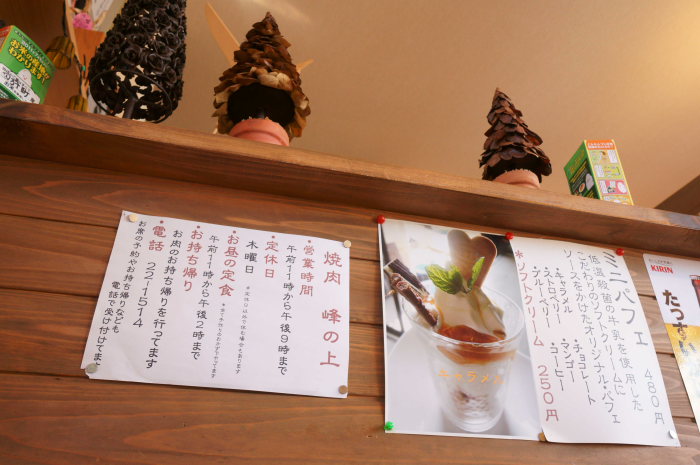 お米の産地が
わかります!
焼肉 峰の上
・営業時間
午前11時から午後9時まで
・定休日
木曜日
＊定休日以外で休む場合も有ります
・お昼の定食
午前11時から午後2時まで
・お持ち帰り
お肉のお持ち帰りを行ってます
・電話 22-1514
お席の予約やお持ち帰りなども
電話で受け付けてます
キャラメル
ミニパフェ 480円
低温殺菌の牛乳を使用した
こだわりのソフトクリームに
ソースをかけたオリジナル・パフェ
・キャラメル ・チョコレート
・ストロベリー ・マンゴー
・ブルーベリー ・コーヒー
＊ソフトクリーム 250円
KIRIN
たっす